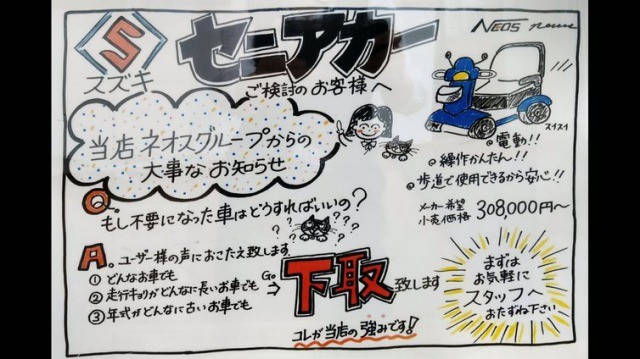 S
スズキ
セニアカー
ご検討のお客様へ
NEOS news
当店ネオスグループからの
大事なお知らせ
スイスイ
・電動!!
・操作かんたん!!
・歩道で使用できるから安心!!
メーカー希望
小売価格 308,000円〜
Q.
もし不要になった車はどうすればいいの?
? ? ? ? ? ?
A。ユーザー様の声におこたえ致します
① どんなお車でも
② 走行キョリがどんなに長いお車でも
③ 年式がどんなに古いお車でも
Go
⇒
下取致します
コレが当店の強みです!
まずは
お気軽に
スタッフへ
おたずね下さい